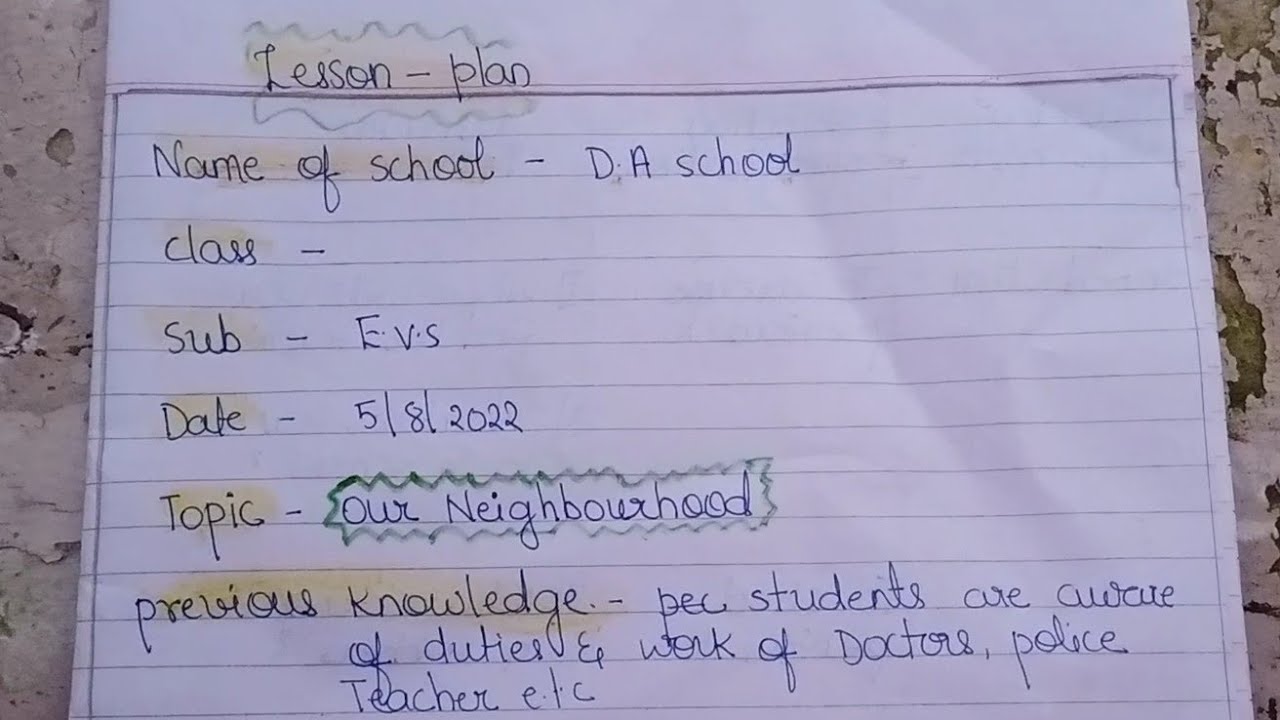 Lesson - plan
Name of school - D.A school
class -
Sub - E.V.S
Date - 5/8/2022
Topic - our Neighbourhood
previous knowledge. - pec students are aware
of duties & work of Doctors, police
Teacher e.t.c